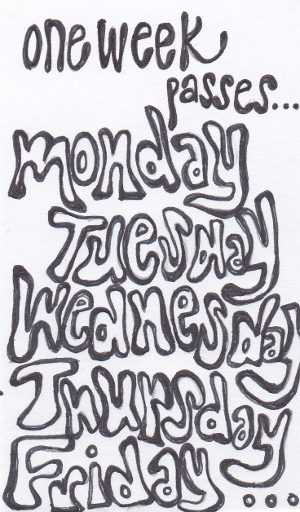 one week
passes...
monday
Tuesday
Wednesday
Thursday
Friday...